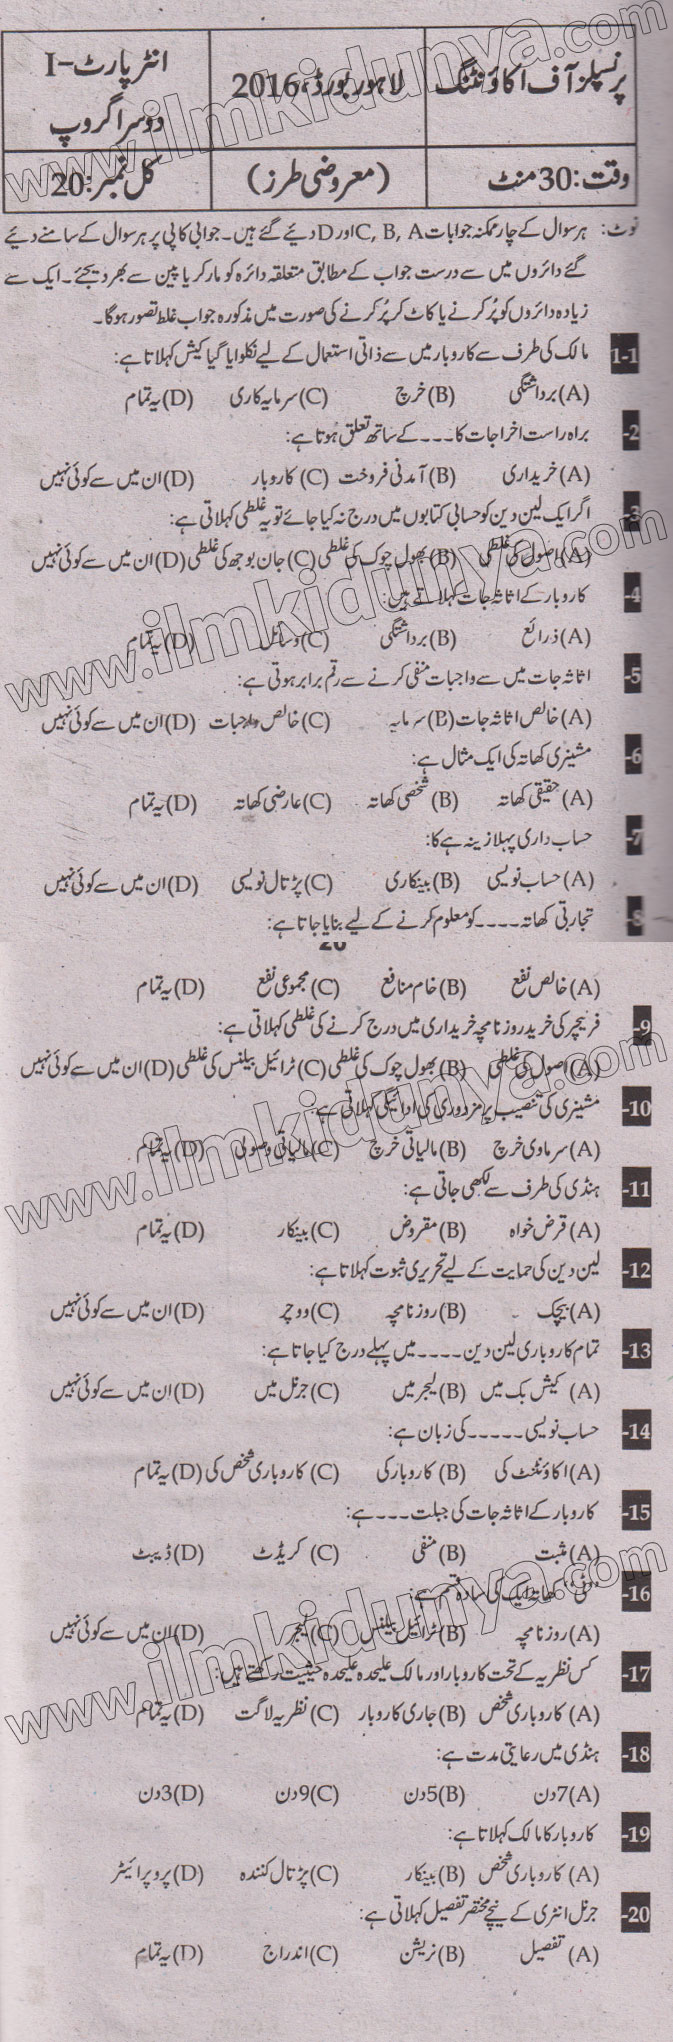 پرنسپلز آف اکاؤنٹنگ
لاہور بورڈ، 2016
انٹر پارٹ-I
دوسرا گروپ
وقت: 30 منٹ
(معروضی طرز)
کل نمبر: 20
نوٹ: ہر سوال کے چار ممکنہ جوابات A، B، C اور D دیئے گئے ہیں۔ جوابی کاپی پر ہر سوال کے سامنے دیئے
گئے دائروں میں سے درست جواب کے مطابق متعلقہ دائرہ کو مارکر یا پین سے بھر دیجئے۔ ایک سے
زیادہ دائروں کو پُر کرنے یا کاٹ کر پُر کرنے کی صورت میں مذکورہ جواب غلط تصور ہوگا۔
1-1 مالک کی طرف سے کاروبار میں سے ذاتی استعمال کے لیے نکلوایا گیا کیش کہلاتا ہے:
(A) برداشتگی (B) خرچ (C) سرمایہ کاری (D) یہ تمام
-2 براہ راست اخراجات کا۔۔۔کے ساتھ تعلق ہوتا ہے:
(A) خریداری (B) آمدنی فروخت (C) کاروبار (D) ان میں سے کوئی نہیں
-3 اگر ایک لین دین کو حسابی کتابوں میں درج نہ کیا جائے تو یہ غلطی کہلاتی ہے:
(A) اصول کی غلطی (B) بھول چوک کی غلطی (C) جان بوجھ کی غلطی (D) ان میں سے کوئی نہیں
-4 کاروبار کے اثاثہ جات کہلاتے ہیں:
(A) ذرائع (B) برداشتگی (C) وسائل (D) یہ تمام
-5 اثاثہ جات میں سے واجبات منفی کرنے سے رقم برابر ہوتی ہے:
(A) خالص اثاثہ جات (B) سرمایہ (C) خالص واجبات (D) ان میں سے کوئی نہیں
-6 مشینری کھاتہ کی ایک مثال ہے:
(A) حقیقی کھاتہ (B) شخصی کھاتہ (C) عارضی کھاتہ (D) یہ تمام
-7 حساب داری پہلا زینہ ہے کا:
(A) حساب نویسی (B) بینکاری (C) پڑتال نویسی (D) ان میں سے کوئی نہیں
-8 تجارتی کھاتہ ۔۔۔۔کو معلوم کرنے کے لیے بنایا جاتا ہے:
(A) خالص نفع (B) خام منافع (C) مجموعی نفع (D) یہ تمام
-9 فرنیچر کی خرید روزنامچہ خریداری میں درج کرنے کی غلطی کہلاتی ہے:
(A) اصول کی غلطی (B) بھول چوک کی غلطی (C) ٹرائیل بیلنس کی غلطی (D) ان میں سے کوئی نہیں
-10 مشینری کی تنصیب پر مزدوری کی ادائیگی کہلاتی ہے:
(A) سرماوی خرچ (B) مالیاتی خرچ (C) مالیاتی وصولی (D) یہ تمام
-11 ہنڈی کی طرف سے لکھی جاتی ہے:
(A) قرض خواہ (B) مقروض (C) بینکار (D) یہ تمام
-12 لین دین کی حمایت کے لیے تحریری ثبوت کہلاتا ہے:
(A) بیچک (B) روزنامچہ (C) ووچر (D) ان میں سے کوئی نہیں
-13 تمام کاروباری لین دین۔۔۔۔ میں پہلے درج کیا جاتا ہے:
(A) کیش بک میں (B) لیجر میں (C) جرنل میں (D) ان میں سے کوئی نہیں
-14 حساب نویسی۔۔۔۔۔کی زبان ہے:
(A) اکاؤنٹنٹ کی (B) کاروبار کی (C) کاروباری شخص کی (D) یہ تمام
-15 کاروبار کے اثاثہ جات کی جبلت۔۔۔ہے:
(A) مثبت (B) منفی (C) کریڈٹ (D) ڈیبٹ
-16 "ٹی" کھاتہ ایک کی سادہ قسم ہے:
(A) روزنامچہ (B) ٹرائیل بیلنس (C) لیجر (D) ان میں سے کوئی نہیں
-17 کس نظریہ کے تحت کاروبار اور مالک علیحدہ علیحدہ حیثیت رکھتے ہیں:
(A) کاروباری شخص (B) جاری کاروبار (C) نظریہ لاگت (D) یہ تمام
-18 ہنڈی میں رعایتی مدت ہے:
(A) 7دن (B) 5دن (C) 9دن (D) 3دن
-19 کاروبار کا مالک کہلاتا ہے:
(A) کاروباری شخص (B) بینکار (C) پڑتال کنندہ (D) پروپرائیٹر
-20 جرنل انٹری کے نیچے مختصر تفصیل کہلاتی ہے:
(A) تفصیل (B) نریشن (C) اندراج (D) یہ تمام
www.ilmkidunya.com
www.ilmkidunya.com
www.ilmkidunya.com
www.ilmkidunya.com